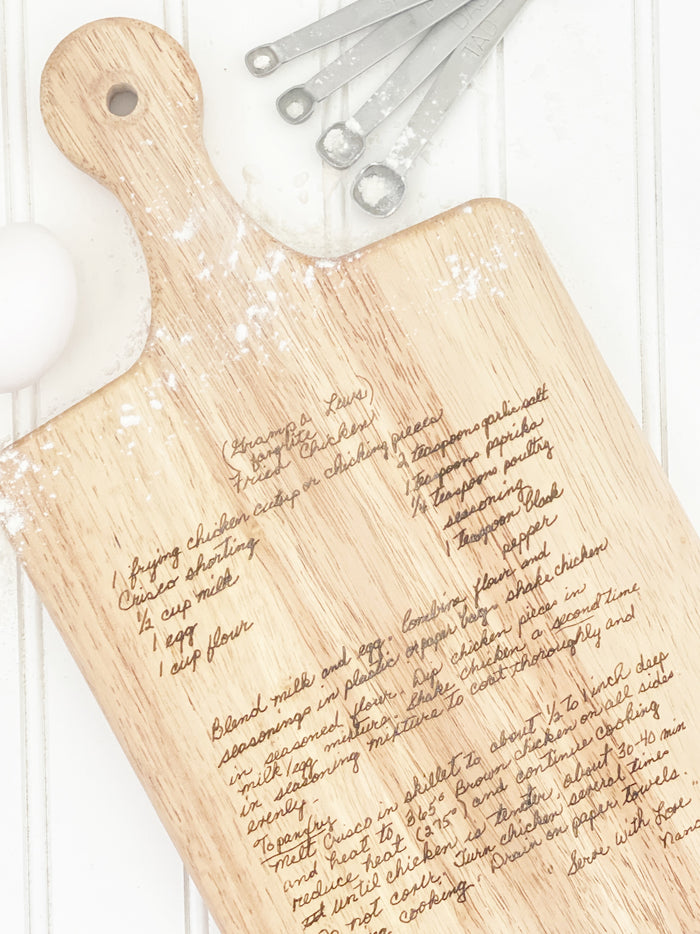 (Grampa Lew's)
favorite
Fried Chicken
1 frying chicken cutup or chicking pieces
Crisco shorting
1/2 cup milk
1 egg
1 cup flour
2 teaspoons garlic salt
1 teaspoons paprika
1/4 teaspoons poultry
seasoning
1 teaspoon black
pepper
Blend milk and egg. Combine flour and
seasonings in plastic or paper bag. shake chicken
in seasoned flour. Dip chicken pieces in
milk/egg mixture. Shake chicken a second time
in seasoning mixture to coat thoroughly and
evenly.
To panfry
Melt Crisco in skillet to about 1/2 to 1 inch deep
and heat to 365° Brown chicken on all sides
reduce heat (275°) and continue cooking
until chicken is tender, about 30-40 min
Do not cover. Turn chicken several times
cooking. Drain on paper towels.
"Serve with Love"
Nanc
TAD